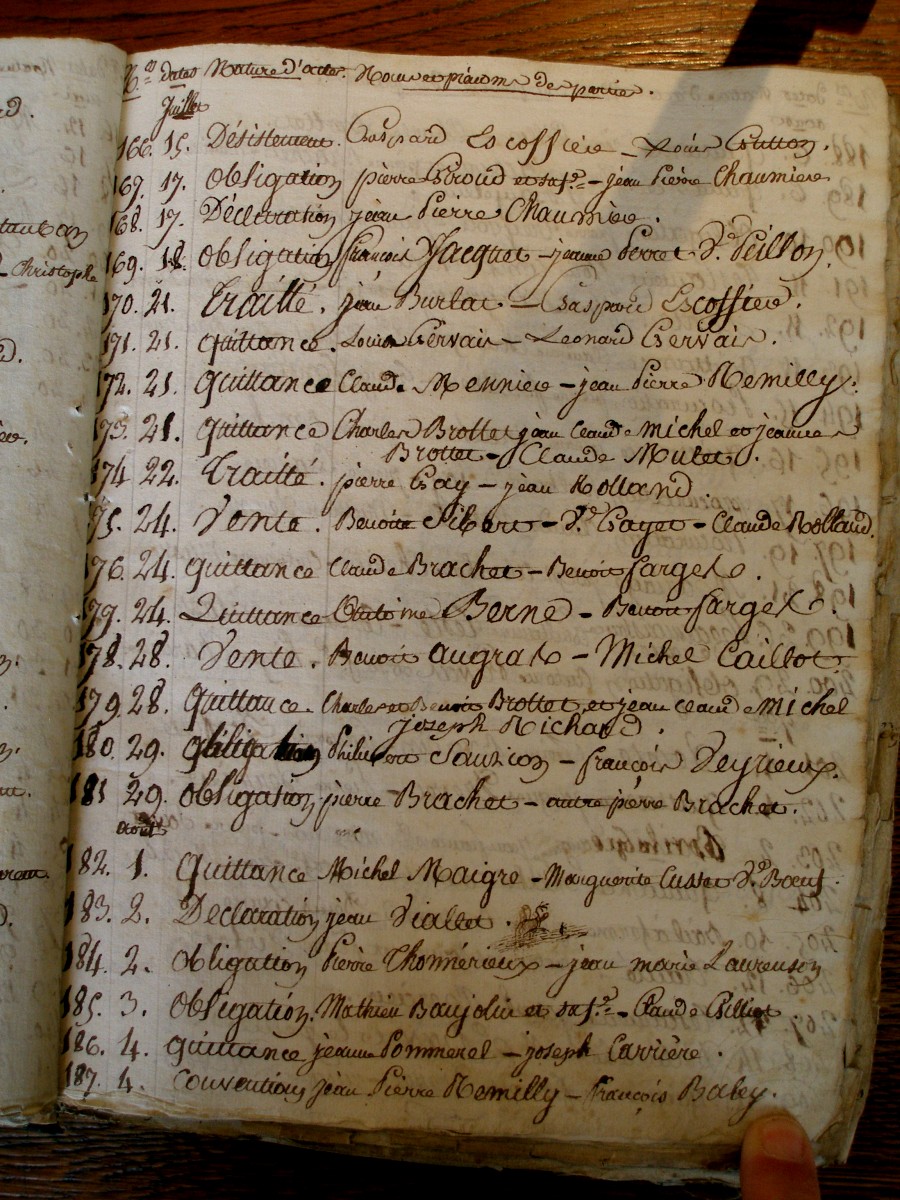 N.os dates Nature d'actes. Noms et prénoms des parties.
Juillet
166. 15. Désistement. Gaspard Escoffier – Louis Gutton.
167. 17. Obligation pierre Giroud et sa f.e – jean Pierre Chaumier
168. 17. Déclaration jean Pierre Chaumier.
169. 18. Obligation françois Jacquet – jeanne Perret V.e Peillon.
170. 21. Traitté. jean Burlat – Gaspard Escoffier.
171. 21. quittance. Louis Gervais – Leonard Gervais.
172. 21. quittance Claude Mennier – jean Pierre Remilly.
173. 21. quittance Charles Brottet jean Claude michel et jeanne
Brottet – Claude Mulet.
174 22. Traitté. pierre Gay – jean Rolland.
175. 24. Vente. Benoite Sibert – V.e Paget – Claude Rolland.
176. 24. quittance Claude Brachet – Benoit
179. 24. Quittance Berne – Benoit
178. 28. Vente. Benoit – Michel Caillot.
179. 28. quittance. Charles et Benoit Brottet, et jean claude michel
joseph Richard.
180. 29. obligation Philibert Sauzion – françois Veyrieux.
181 29. obligation pierre Brachet – autre pierre Brachet.
Aout
182. 1. quittance Michel Maigre – Marguerite Cusset V.e Boeuf.
183. 2. Declaration jean Viallet.
184. 2. obligation Pierre Thomérieux – jean marie Laurenson
185. 3. obligation. Mathieu Baujolin et sa f.e – Claude Gilliot.
186. 4. quittance jeanne Pommerel – joseph Carrière.
187. 4. Conventions jean Pierre Remilly – françois Baley.